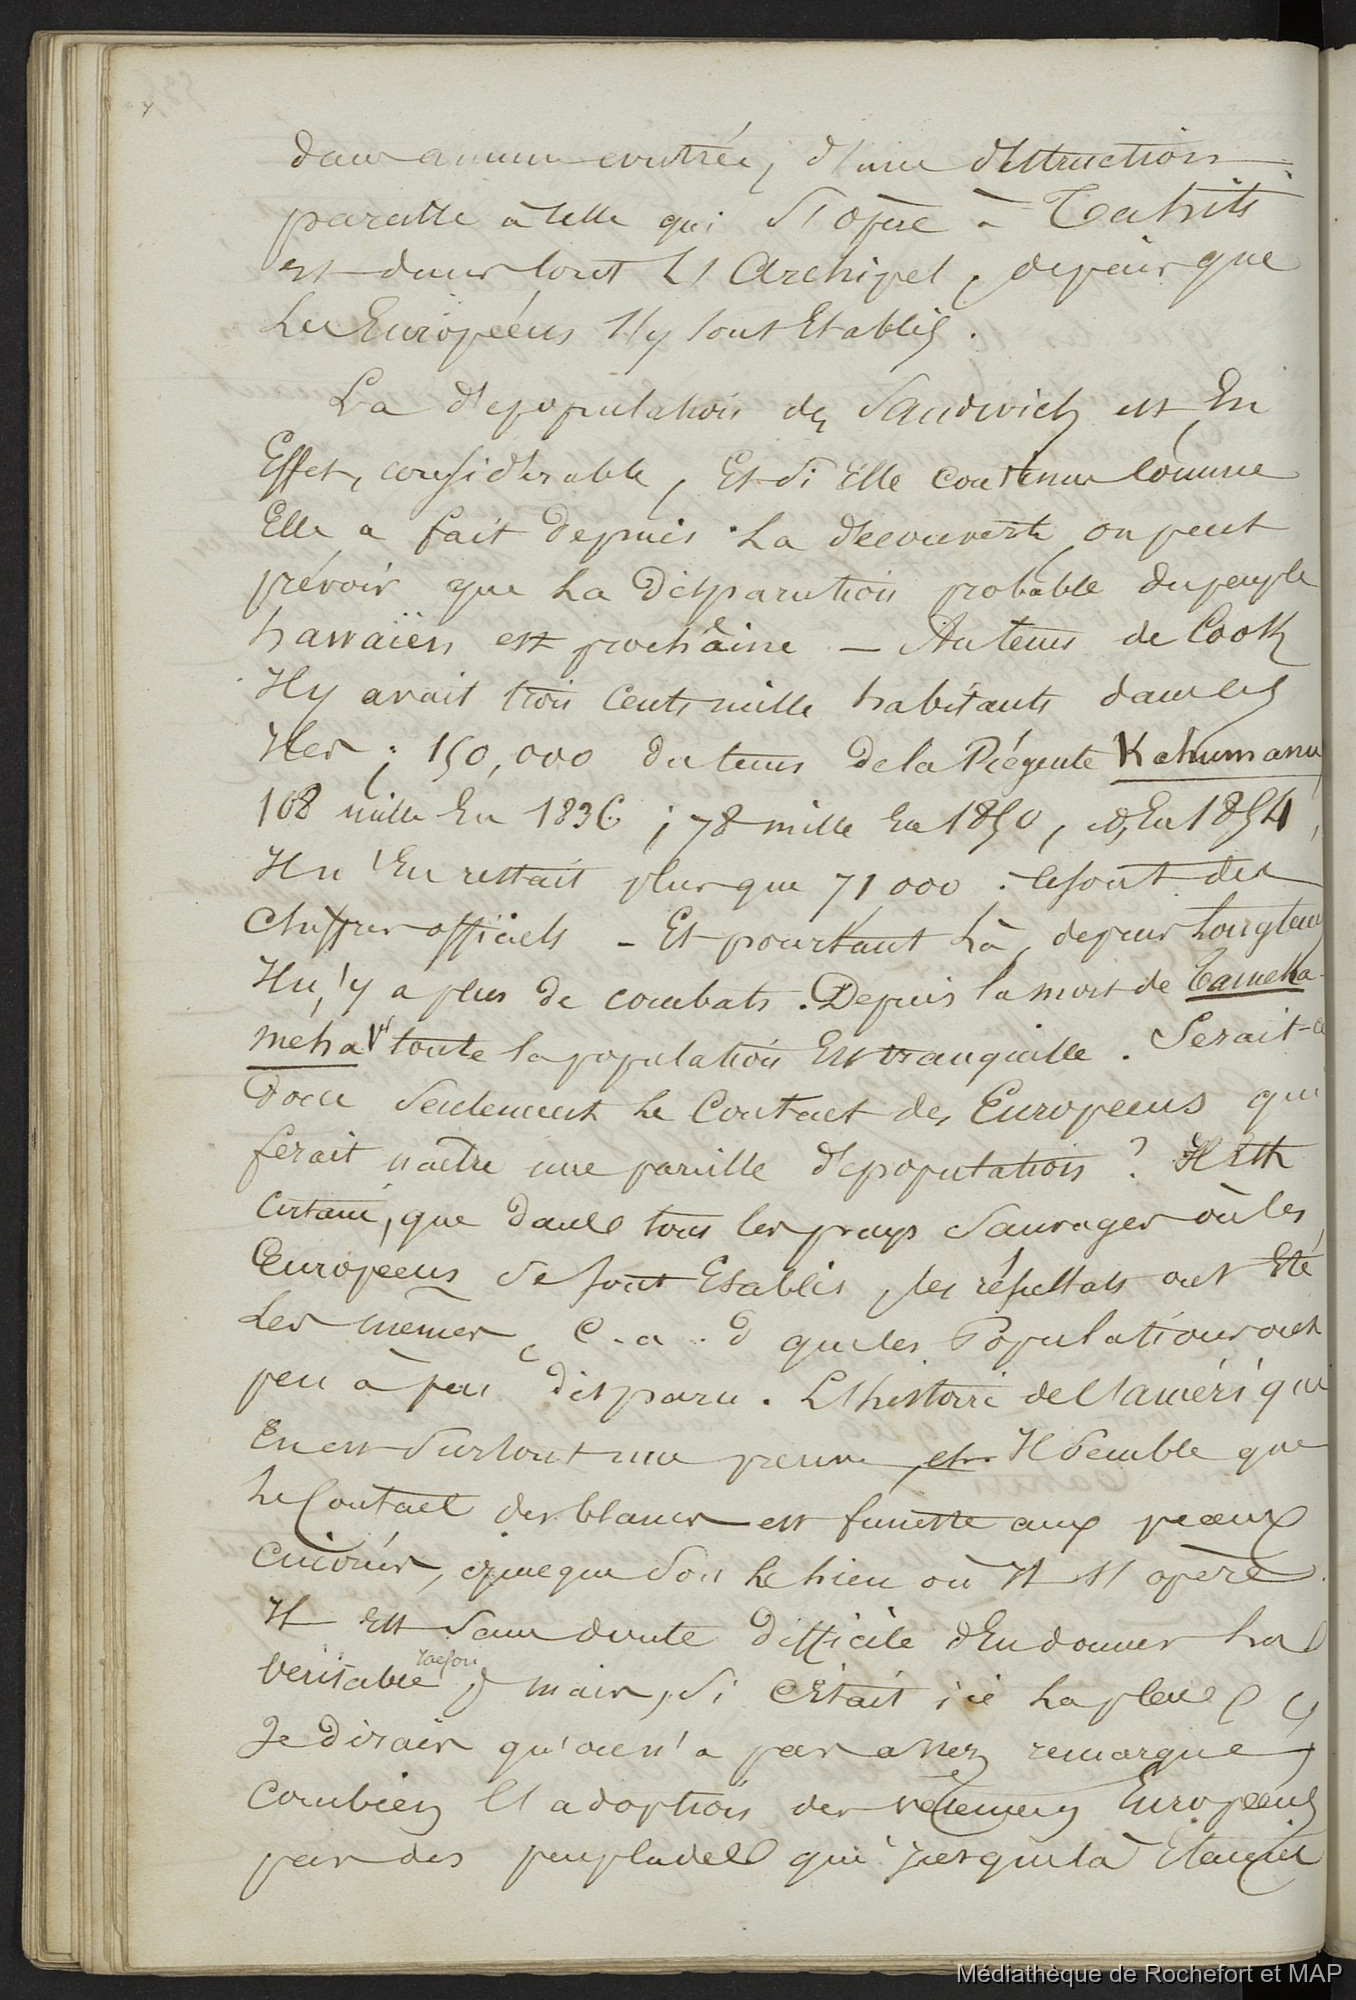 dans aucune contrée, d'une destruction
pareille à celle qui s'opère à Tahiti
et dans tout l'archipel, depuis que
les Européens s'y sont établis.
La dépopulation des Sandwich est, en
effet, considérable, et si elle continue comme
elle a fait depuis la découverte, on peut
prévoir que la disparution probable du peuple
hawaïen est prochaine — Au tems de Cook
il y avait trois cents mille habitants dans les
îles ; 150,000 du tems de la Régente Kahumanu
108 mille en 1836 ; 78 mille en 1850, et, en 1854,
il n'en restait plus que 71,000 : ce sont des
chiffres officiels - Et pourtant là, depuis longtems
il n'y a plus de combats. Depuis la mort de Tameha-
meha Ve toute la population est tranquille. Serait-ce
donc seulement le contact des Européens qui
ferait naître une pareille dépopulation ? Il est
certain, que dans tous les pays sauvages où les
Européens se sont établis, les résultats ont été
les mêmes, c.a.d que les populations ont
peu à peu disparu. L'histoire de l'amérique
en est surtout une preuve et il semble que
le contact des blancs est funeste aux peaux
cuivrées, quelque soit le lieu où il s'opère.
Il est sans doute difficile d'en donner la
raison
véritable, mais, si c'était ici la place,
je dirais qu'on n'a pas assez remarqué,
combien l'adoption des vêtemens Européens
par des peuplades qui jusque là étaient
Médiathèque de Rochefort et MAP